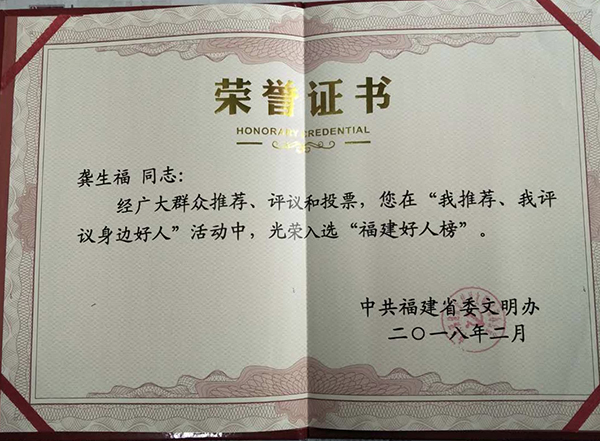 荣誉证书
HONORARY CREDENTIAL
龚生福 同志：
经广大群众推荐、评议和投票，您在“我推荐、我评
议身边好人”活动中，光荣入选“福建好人榜”。
中共福建省委文明办
二〇一八年二月